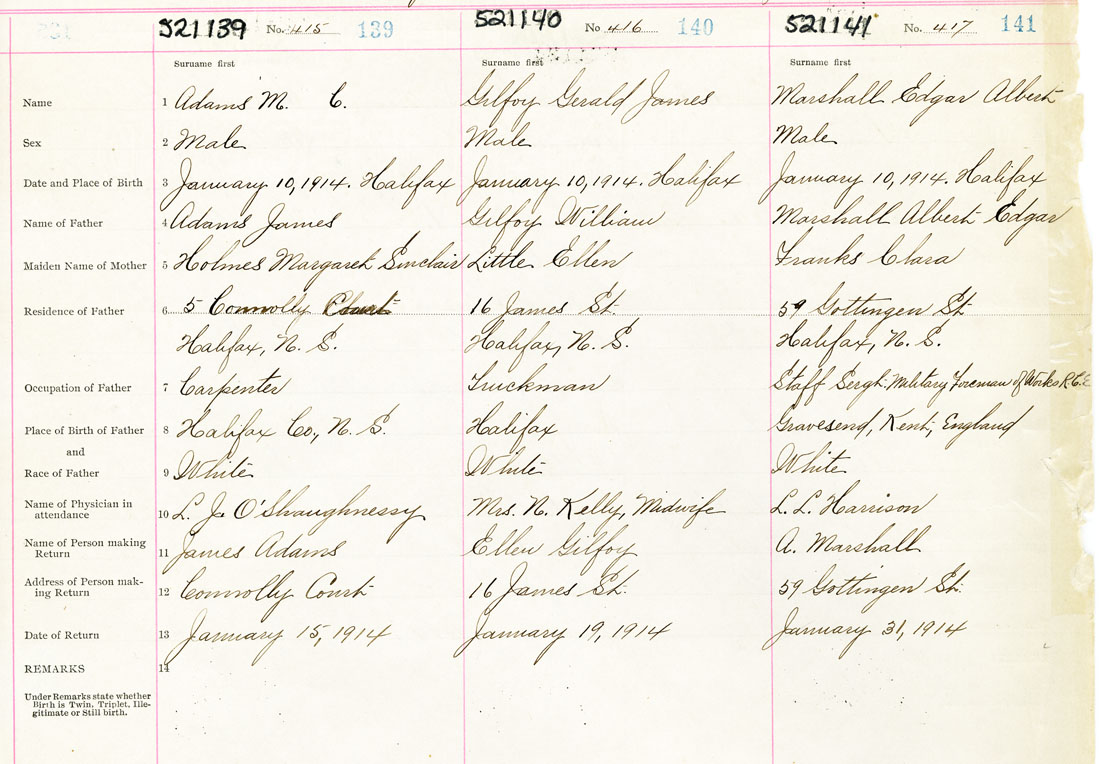 521139 No. 415 139 521140 No 416 140 521141 No. 417 141
Surname first Surname first Surname first
Name 1 Adams M. C. Gilfoy Gerald James Marshall Edgar Albert
Sex 2 Male Male Male
Date and Place of Birth 3 January 10, 1914. Halifax January 10, 1914. Halifax January 10, 1914. Halifax
Name of Father 4 Adams James Gilfoy William Marshall Albert Edgar
Maiden Name of Mother 5 Holmes Margaret Sinclair Little Ellen Franks Clara
Residence of Father 6 5 Connolly Court 16 James St. 59 Gottingen St
Halifax, N. S. Halifax, N. S. Halifax, N. S.
Occupation of Father 7 Carpenter Truckman Staff Sergt: Military Foreman of Works R. C. E
Place of Birth of Father 8 Halifax Co., N. S. Halifax Gravesend, Kent, England
and
Race of Father 9 White White White
Name of Physician in attendance 10 L. J. O'Shaughnessy Mrs. N. Kelly, Midwife L. L. Harrison
Name of Person making Return 11 James Adams Ellen Gilfoy A. Marshall
Address of Person mak-ing Return 12 Connolly Court 16 James St. 59 Gottingen St.
Date of Return 13 January 15, 1914 January 19, 1914 January 31, 1914
REMARKS 14
Under Remarks state whether
Birth is Twin, Triplet, Ille-
gitimate or Still birth.